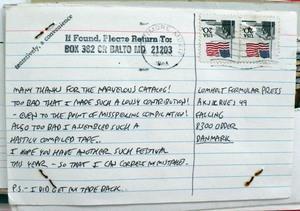 tentatively, a convenience
If Found, Please Return To:
BOX 382 CR BALTO MD 21203
MANY THANKS FOR THE MARVELOUS CATALOG!
TOO BAD THAT I MADE SUCH A LOUSY CONTRIBUTION!
- EVEN TO THE POINT OF MISSPELLING COMPILATION!
ALSO TOO BAD I ASSEMBLED SUCH A
HASTILY COMPILED TAPE.
I HOPE YOU HAVE ANOTHER SUCH FESTIVAL
THIS YEAR - SO THAT I CAN CORRECT M MISTAKE.
P.S. - I DID GET M TAPE BACK.
PRESS
49
8300 ODDER
DENMARK